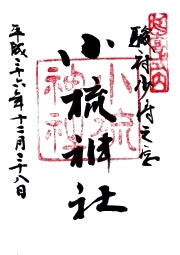 駿府御守之宮
小梳神社
平成二十六年十二月二十八日
小梳神社